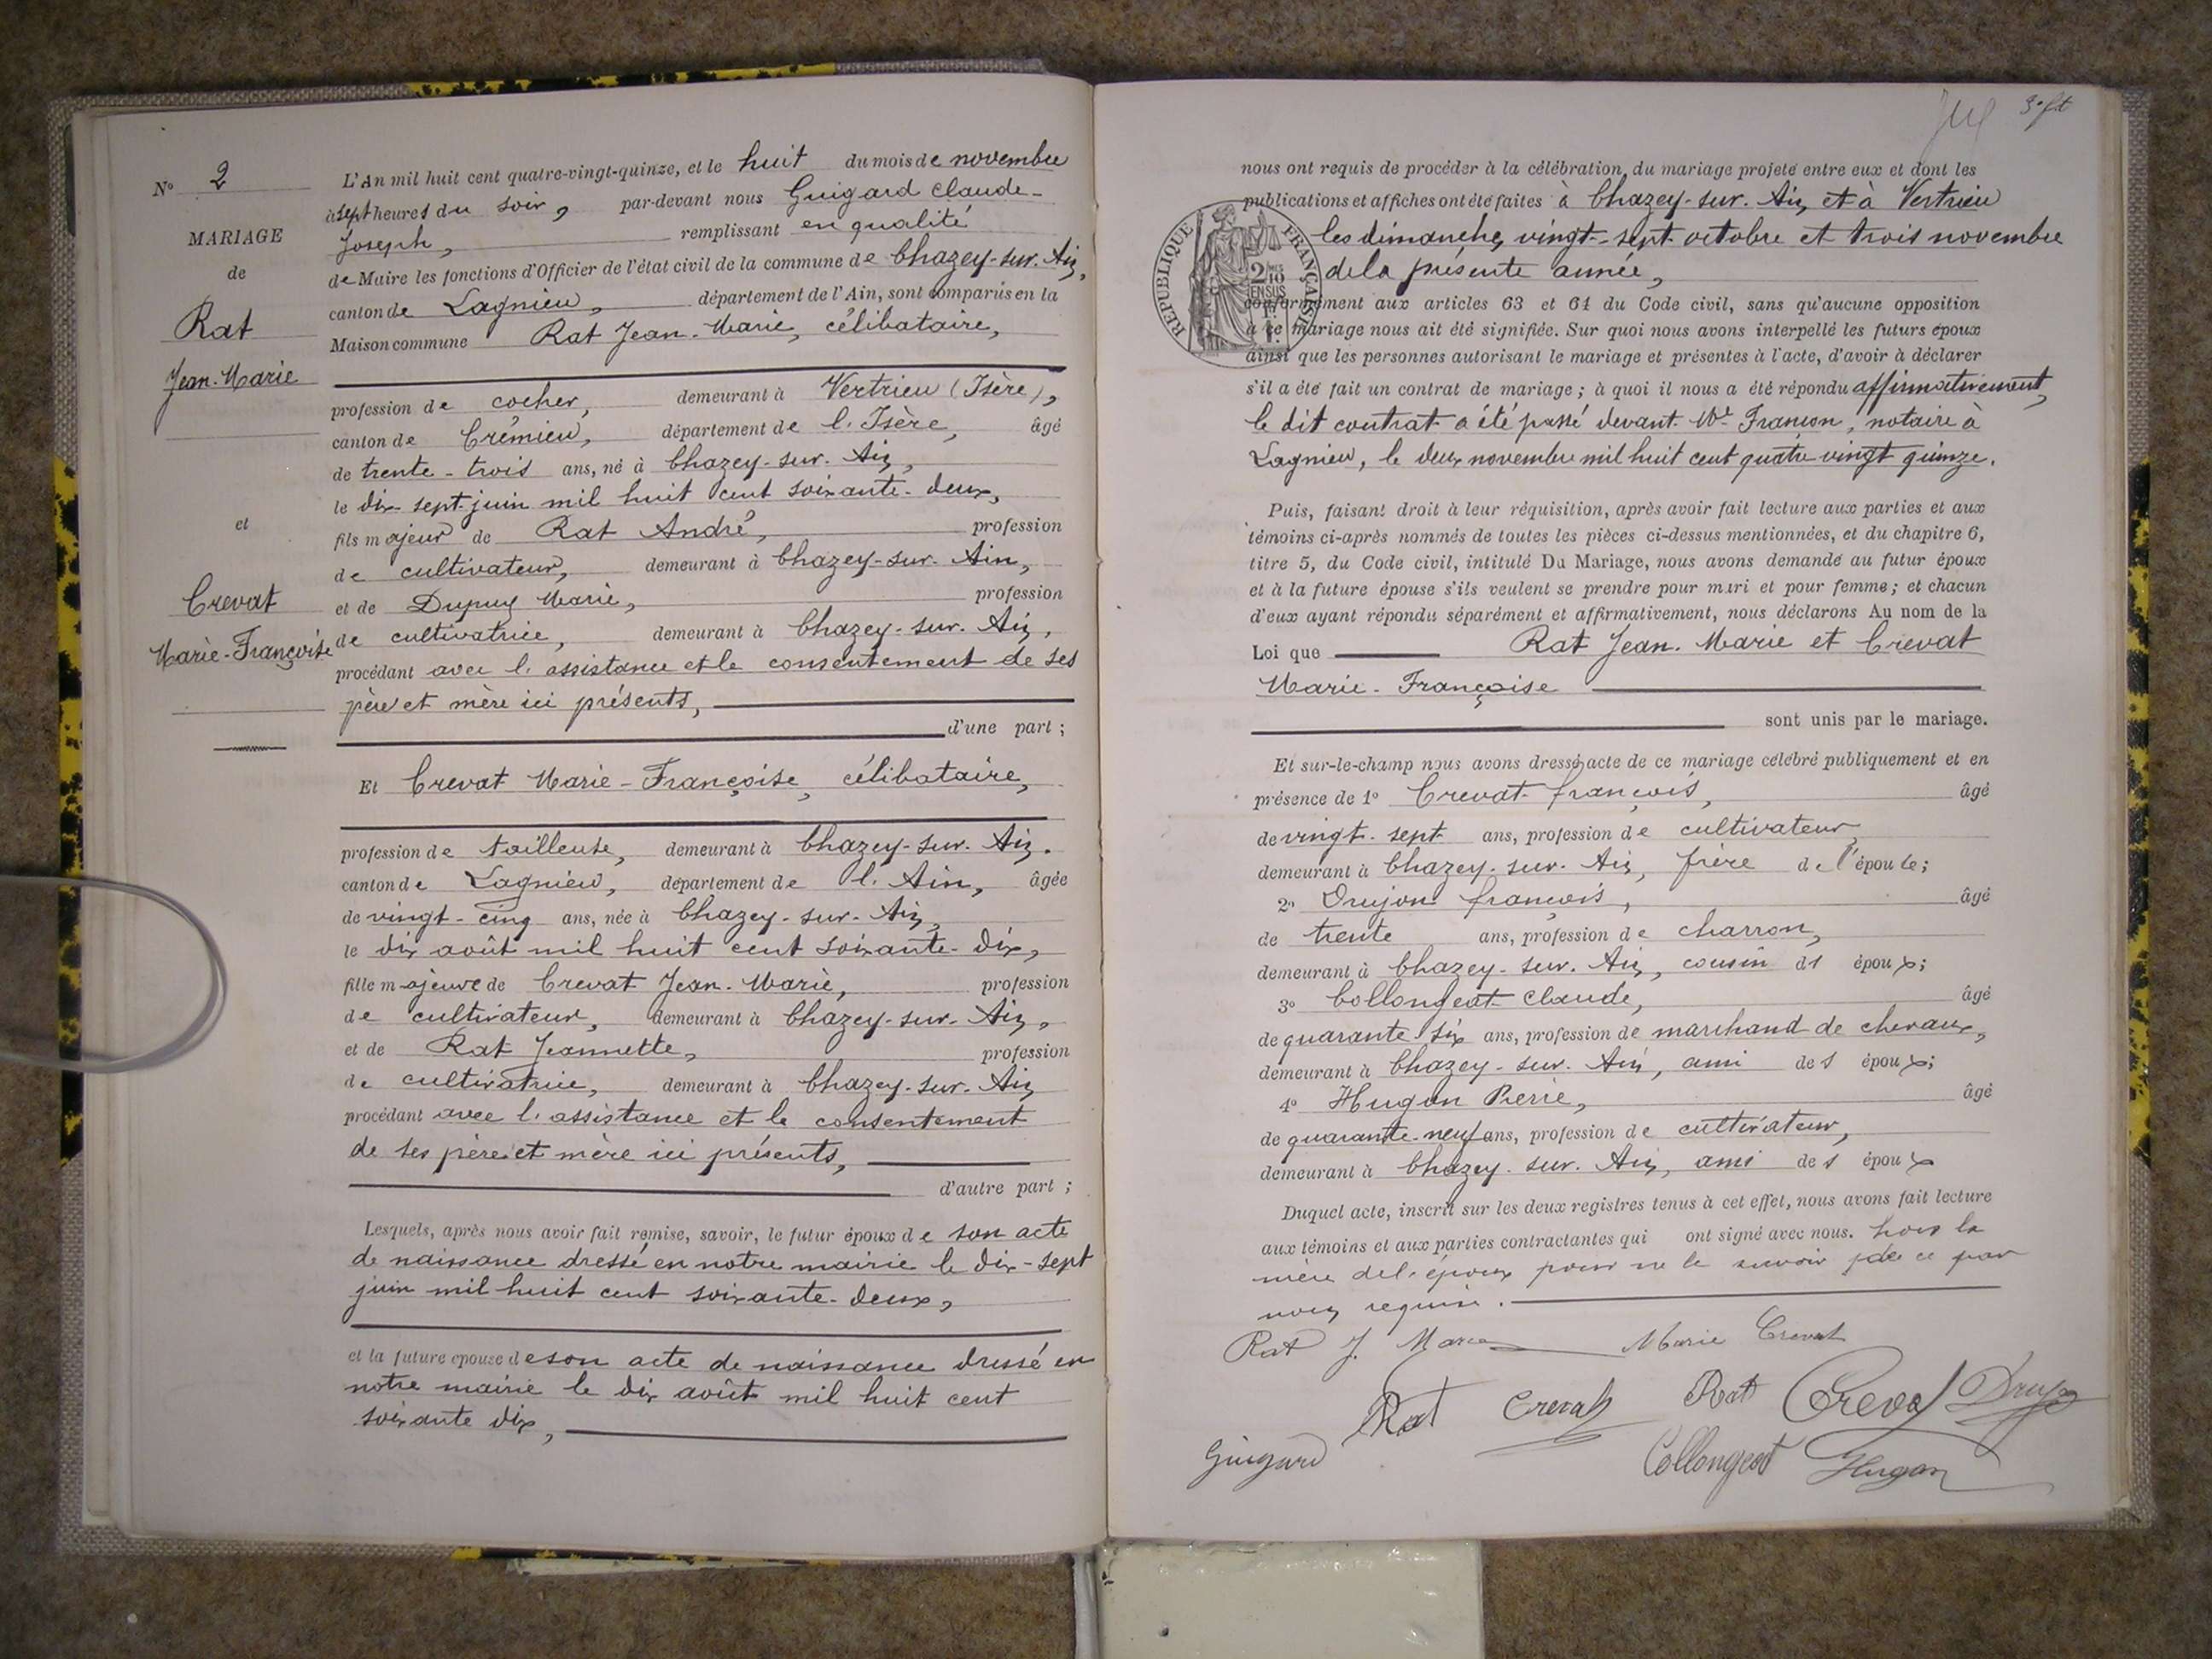 N° 2
MARIAGE
de
Rat
Jean-Marie
et
Crevat
Marie-Françoise
L'An mil huit cent quatre-vingt-quinze, et le huit du mois de novembre
à sept heures du soir, par-devant nous Guigard Claude-
Joseph, remplissant en qualité
de Maire les fonctions d'Officier de l'état civil de la commune de Chazey-sur-Ain,
canton de Lagnieu, département de l'Ain, sont comparus en la
Maison commune Rat Jean-Marie, célibataire,
profession de cocher, demeurant à Vertrieu (Isère),
canton de Crémieu, département de l'Isère, âgé
de trente-trois ans, né à Chazey-sur-Ain,
le dix-sept juin mil huit cent soixante-deux,
fils majeur de Rat André, profession
de cultivateur, demeurant à Chazey-sur-Ain,
et de Dupuy Marie, profession
de cultivatrice, demeurant à Chazey-sur-Ain,
procédant avec l'assistance et le consentement de ses
père et mère ici présents,
d'une part ;
Et Crevat Marie-Françoise, célibataire,
profession de tailleuse, demeurant à Chazey-sur-Ain.
canton de Lagnieu, département de l'Ain, âgée
de vingt-cinq ans, née à Chazey-sur-Ain,
le dix août mil huit cent soixante-dix,
fille majeure de Crevat Jean-Marie, profession
de cultivateur, demeurant à Chazey-sur-Ain,
et de Rat Jeannette, profession
de cultivatrice, demeurant à Chazey-sur-Ain
procédant avec l'assistance et le consentement
de ses père et mère ici présents,
d'autre part ;
Lesquels, après nous avoir fait remise, savoir, le futur époux de son acte
de naissance dressé en notre mairie le dix-sept
juin mil huit cent soixante-deux,
et la future épouse de son acte de naissance dressé en
notre mairie le dix août mil huit cent
soixante dix,
nous ont requis de procéder à la célébration du mariage projeté entre eux et dont les
publications et affiches ont été faites à Chazey-sur-Ain, et à Vertrieu
les dimanche, vingt-sept octobre et trois novembre
de la présente année,
RÉPUBLIQUE FRANÇAISE
2 10
EN SUS
conformément aux articles 63 et 64 du Code civil, sans qu'aucune opposition
à ce mariage nous ait été signifiée. Sur quoi nous avons interpellé les futurs époux
ainsi que les personnes autorisant le mariage et présentes à l'acte, d'avoir à déclarer
s'il a été fait un contrat de mariage ; à quoi il nous a été répondu affirmativement,
le dit contrat a été passé devant Me Francon, notaire à
Lagnieu, le deux novembre mil huit cent quatre vingt quinze.
Puis, faisant droit à leur réquisition, après avoir fait lecture aux parties et aux
témoins ci-après nommés de toutes les pièces ci-dessus mentionnées, et du chapitre 6,
titre 5, du Code civil, intitulé Du Mariage, nous avons demandé au futur époux
et à la future épouse s'ils veulent se prendre pour mari et pour femme ; et chacun
d'eux ayant répondu séparément et affirmativement, nous déclarons Au nom de la
Loi que Rat Jean-Marie et Crevat
Marie-Françoise
sont unis par le mariage.
Et sur-le-champ nous avons dressé acte de ce mariage célébré publiquement et en
présence de 1° Crevat françois, âgé
de vingt-sept ans, profession de cultivateur,
demeurant à Chazey-sur-Ain, frère de l'épouse ;
2° Drujon françois, âgé
de trente ans, profession de charron,
demeurant à Chazey-sur-Ain, cousin ds époux ;
3° Collongeat Claude, âgé
de quarante six ans, profession de marchand de chevaux,
demeurant à Chazey-sur-Ain, ami des époux ;
4° Hugon Pierre, âgé
de quarante-neuf ans, profession de cultivateur,
demeurant à Chazey-sur-Ain, ami des époux
Duquel acte, inscrit sur les deux registres tenus à cet effet, nous avons fait lecture
aux témoins et aux parties contractantes qui ont signé avec nous. hors la
mère de l'époux pour ne le savoir de ce par
nous requise.
Rat J. Marie Marie Crevat
Rat Crevat Rat Crevat
Guigard Collongeat Hugon